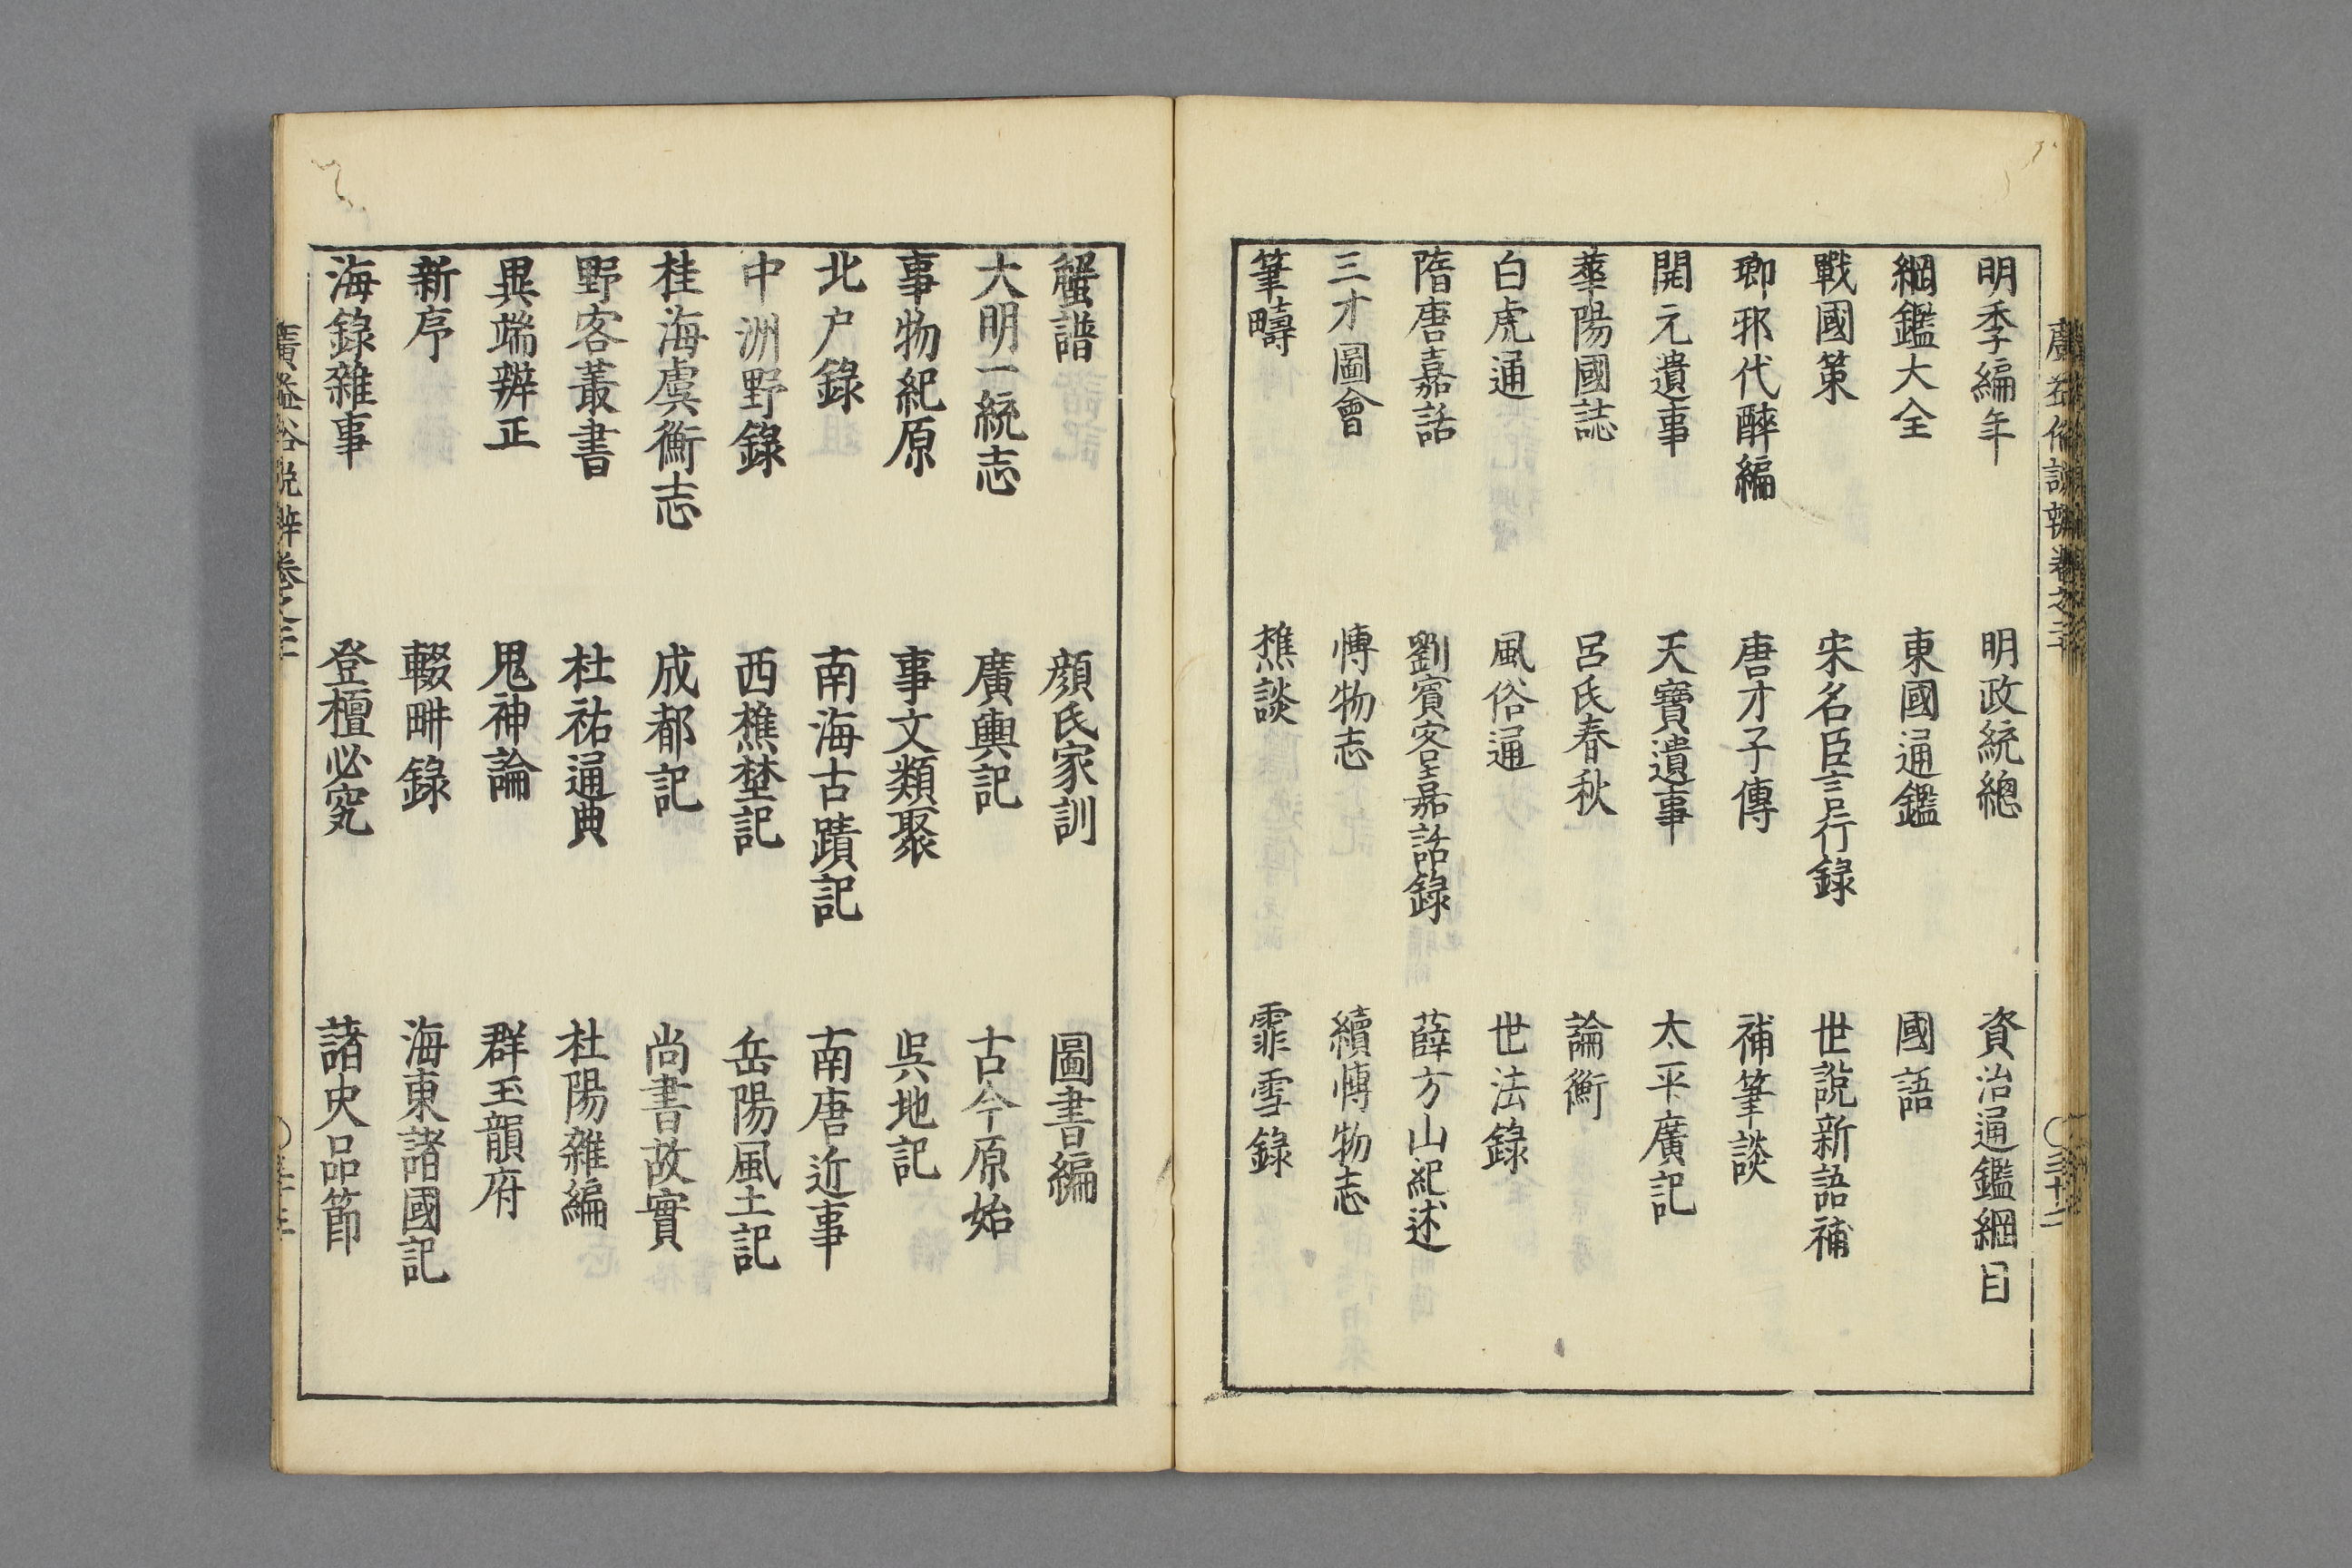 明季編年　明政統總　資治通鑑綱目
綱鑑大全　東國通鑑　國語
戰國策　宋名臣言行録　世説新語補
瑯邪代醉編　唐才子傳　補筆談
開元遺事　天寶遺事　太平廣記
華陽國誌　呂氏春秋　論衡
白虎通　風俗通　世法錄
隋唐嘉話　劉賓客嘉話録　薛方山紀述
三才圖會　博物志　續博物志
筆疇　樵談　霏雪錄
蟹譜　顔氏家訓　圖書編
大明一統志　廣輿記　古今原始
事物紀原　事文類聚　吳地記
北户錄　南海古蹟記　南唐近事
中洲野錄　西樵埜記　岳陽風土記
桂海虞衡志　成都記　尚書故實
野客叢書　杜祐通典　杜陽雜編
異端辨正　鬼神論　群玉韻府
新序　輟畊錄　海東諸國記
海錄雜事　登檀必究　諸史品節
廣益俗説辨卷之三